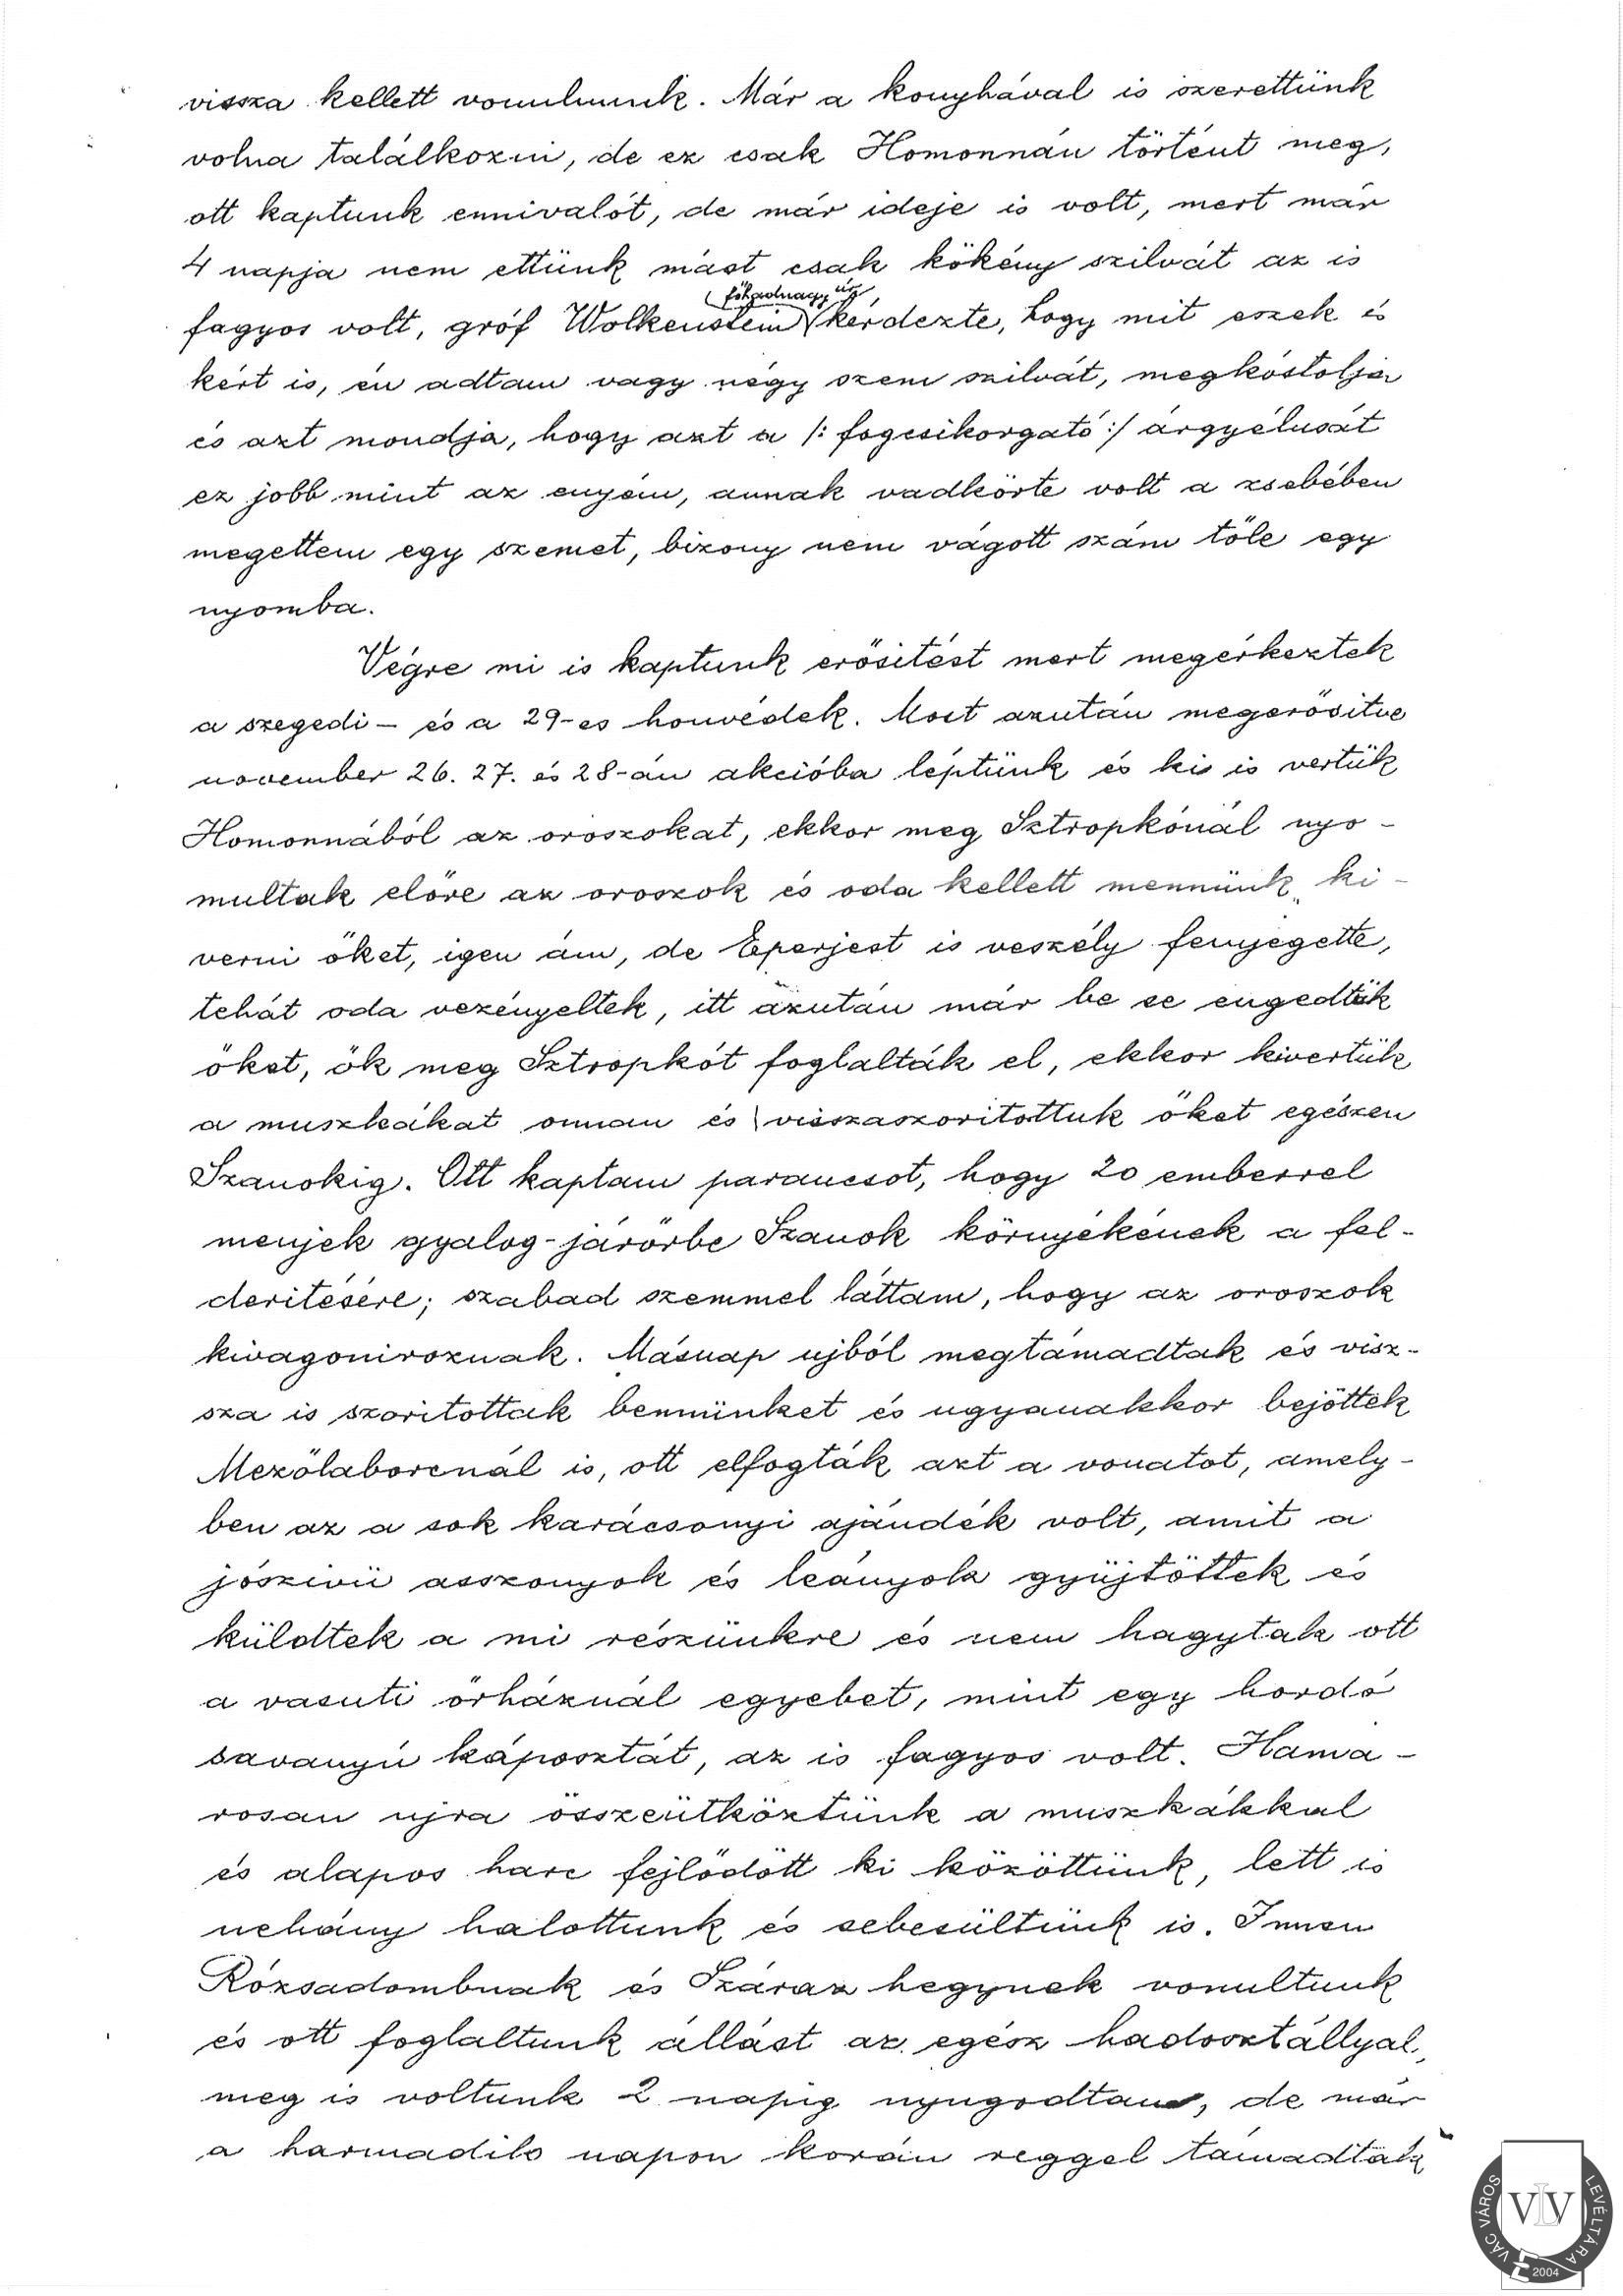 vissza kellett vonulnunk. Már a konyhával is szerettünk
volna találkozni, de ez csak Homonnán történt meg,
ott kaptunk ennivalót, de már ideje is volt, mert már
4 napja nem ettünk mást csak kökény szilvát az is
főhadnagy úr
fagyos volt, gróf Wolkenstein kérdezte, hogy mit eszek és
kért is, én adtam vagy négy szem szilvát, megkóstolja
és azt mondja, hogy azt a /: fogcsikorgató :/ árgyélusát
ez jobb mint az enyém, annak vadkörte volt a zsebében
megettem egy szemet, bizony nem vágott szám tőle egy
nyomba.
Végre mi is kaptunk erősitést mert megérkeztek
a szegedi - és a 29-es honvédek. Most azután megerősitve
november 26. 27. és 28-án akcióba léptünk és ki is vertük
Homonnából az oroszokat, ekkor meg Sztropkónál nyo-
multak előre az oroszok és oda kellett mennünk ki-
verni őket, igen ám, de Eperjest is veszély fenyegette,
tehát oda vezényeltek, itt azután már be se engedtük
őket, ők meg Sztropkót foglalták el, ekkor kivertük
a muszkákat onnan és visszaszoritottuk őket egészen
Szanokig. Ott kaptam parancsot, hogy 20 emberrel
menjek gyalog-járőrbe Szanok környékének a fel-
deritésére; szabad szemmel láttam, hogy az oroszok
kivagoniroznak. Másnap ujból megtámadtak és visz-
sza is szoritottak bennünket és ugyanakkor bejöttek
Mezőlaborcnál is, ott elfogták azt a vonatot, amely-
ben az a sok karácsonyi ajándék volt, amit a
jószivü asszonyok és leányok gyüjtöttek és
küldtek a mi részünkre és nem hagytak ott
a vasuti őrháznál egyebet, mint egy hordó
savanyú káposztát, az is fagyos volt. Hama-
rosan ujra összeütköztünk a muszkákkal
és alapos harc fejlődött ki közöttünk, lett is
nehány halottunk és sebesültünk is. Innen
Rózsadombnak és Száraz hegynek vonultunk
és ott foglaltunk állást az egész hadosztállyal,
meg is voltunk 2 napig nyugodtan, de már
a harmadik napon korán reggel támadtak
VÁC VÁROS LEVÉLTÁRA
VLV
2004